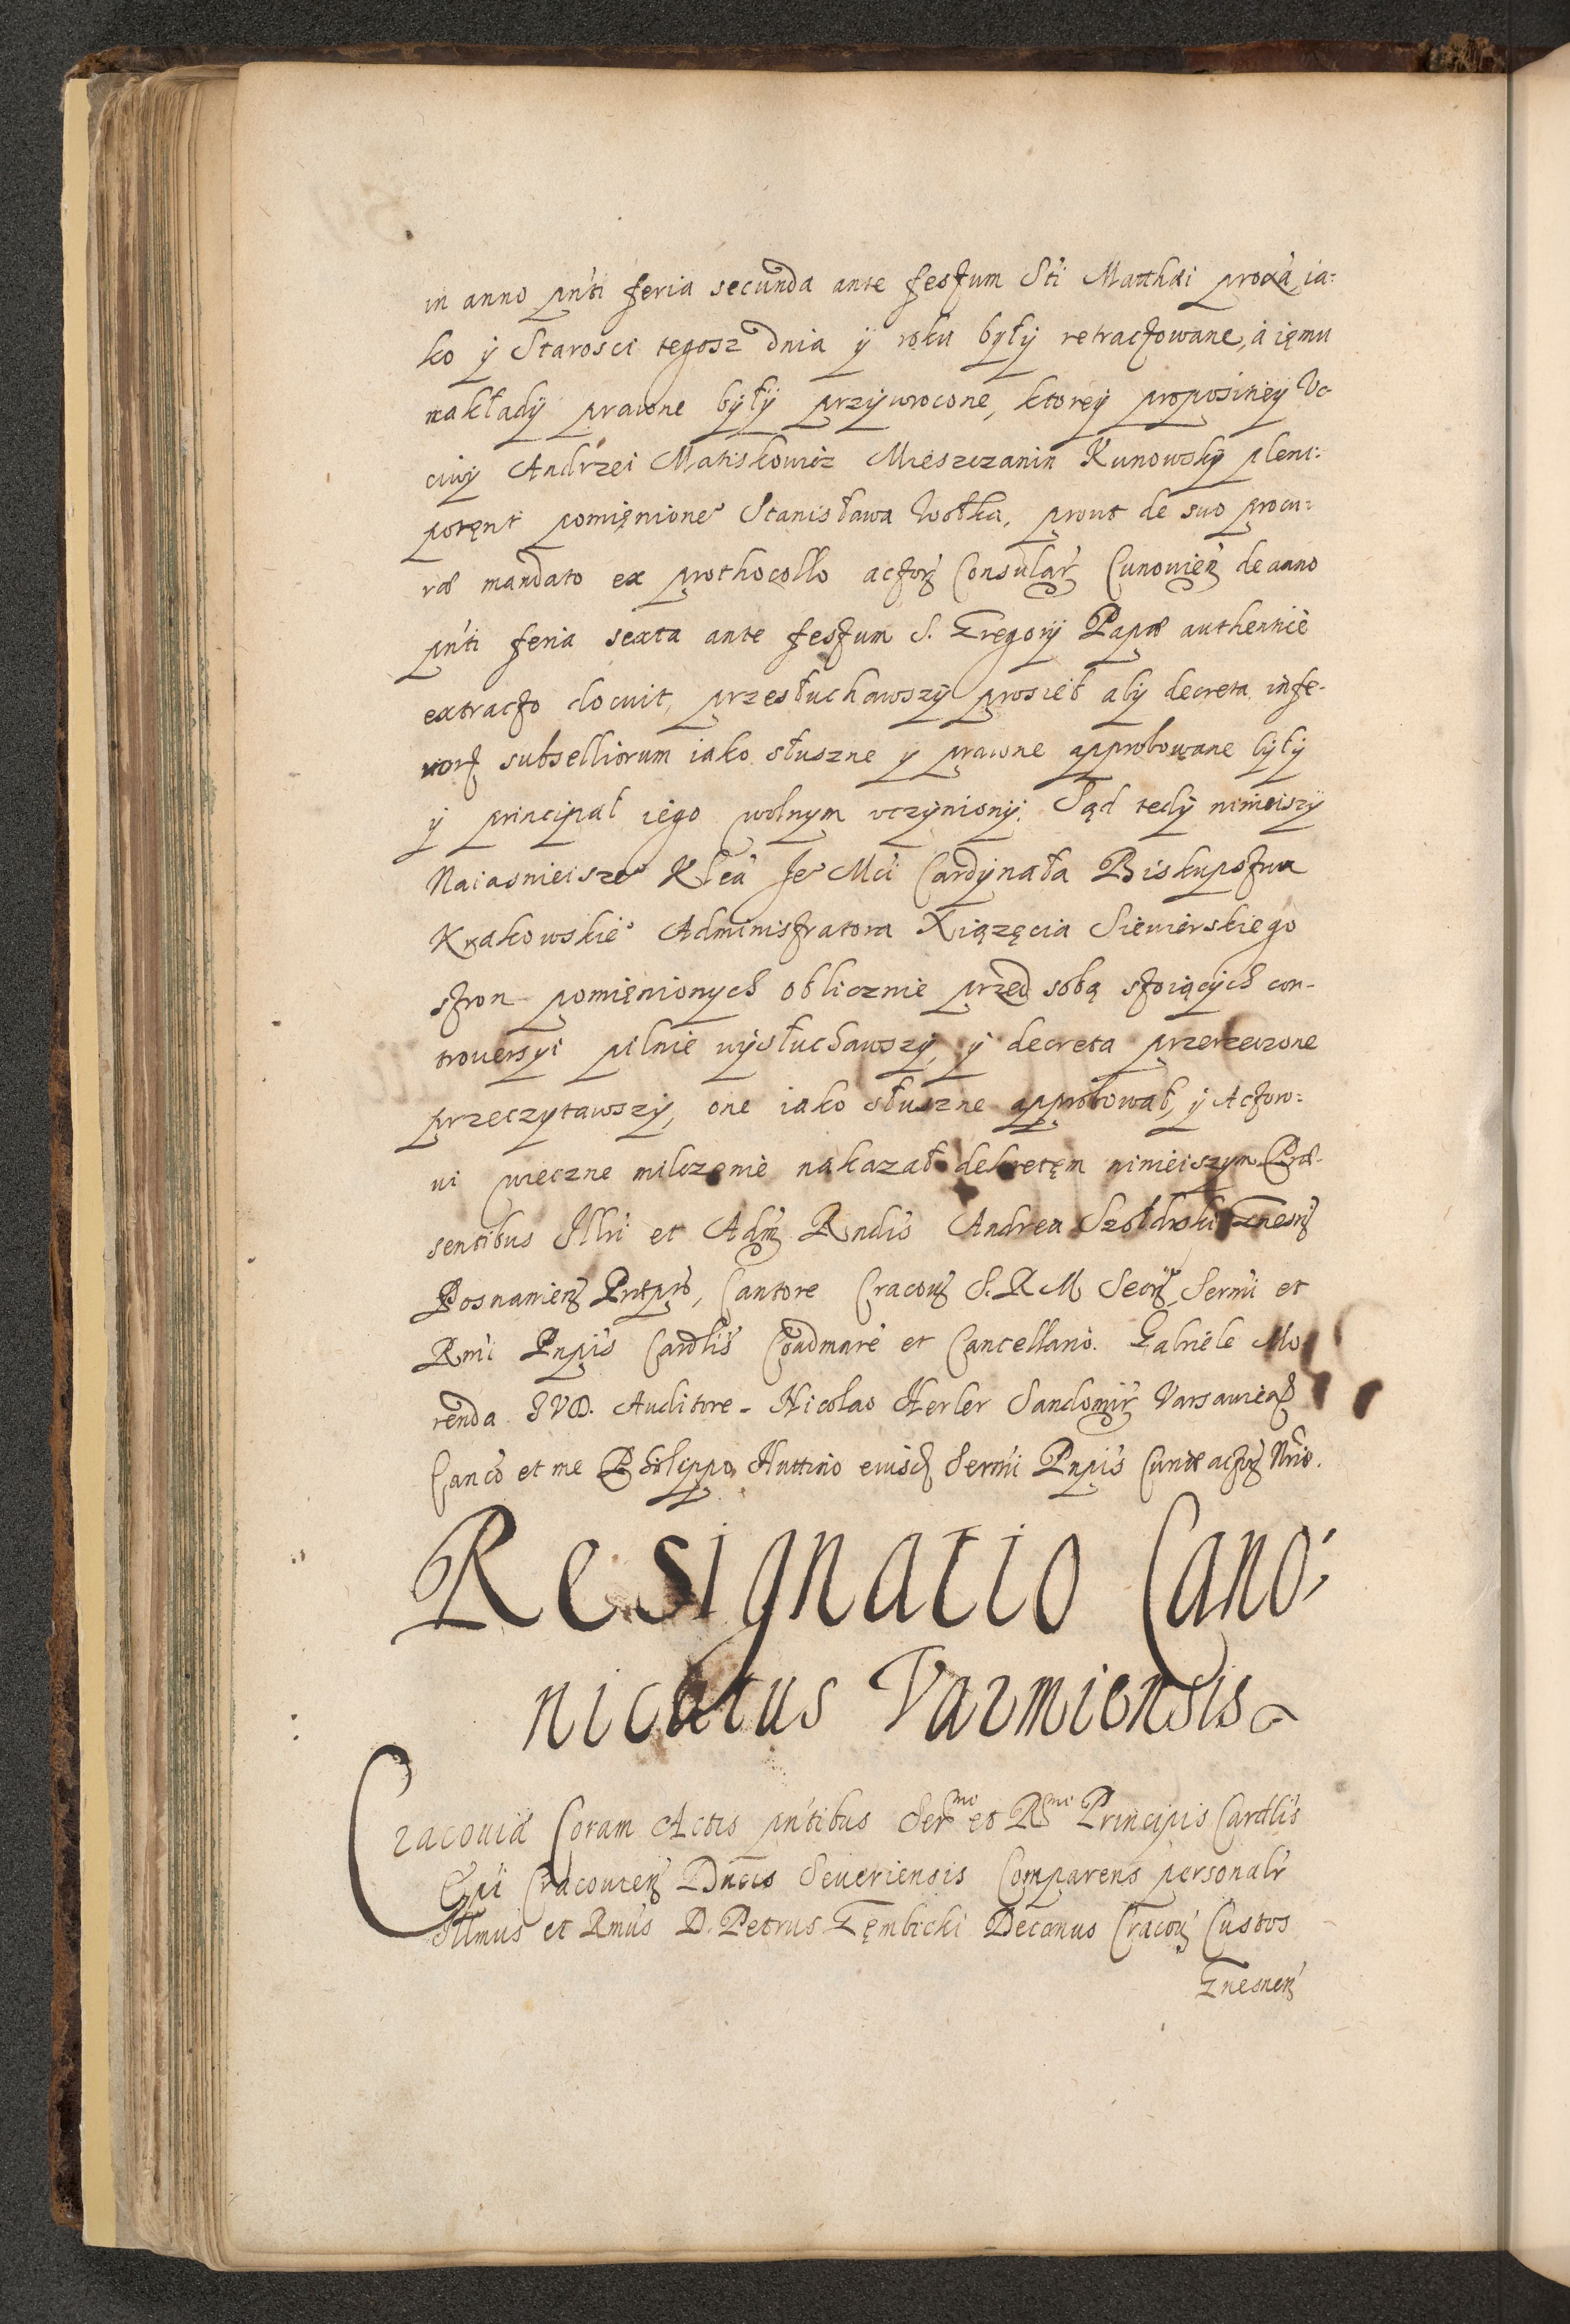 in anno pnti feria secunda ante festum Sti Matthæi proxa, ia=
ko ÿ Starosci tegosz dnia ÿ roku bÿłÿ retractowane, á ięmu
nakładÿ prawne bÿłÿ przÿwrocone, ktoreÿ proposiuieÿ Vc-
ciwÿ Andrzei Matiskowicz Mieszczanin Kunowskÿ pleni=
potęnt pomięnione° Stanisława Wołka, prout de suo procu=
ræ mandato ex prothocollo actorz Consular Cunowien de anno
pnti feria sexta ante festum S. Gregorij Papæ authentice
extracto docuit, przesłuchawszÿ prosieł abÿ decreta infe-
riorz subselliorum iako słuszne y prawne approbowane bÿłÿ
ÿ principał iego wolnym vczÿnionÿ. Sąd tedÿ ninieiszÿ
Naiasnieisze° Xcia Je° Mci Cardÿnała Biskupstwa
Krakowskie° Administratora Xiązęcia Siewierskiego
stron pomięnionych oblicznie przed sobą stoiącÿch con-
trouersyi pilnie wÿsłuchawszÿ, ÿ decreta przerzeczone
przeczytawszÿ, one iako słuszne approbował, ÿ Actoro=
ui wieczne milczenie nakazał dekretęm ninieiszym Præ-
sentibus Illri et Adm Rndis Andrea Szołdrski Gnesn
Posnanien Prtpro, Cantore Cracou S. R M Secr, Sermi et
Rmi Pnpis Cardlis Coadmare et Cancellario. Gabriele Mo
renda I V D. Auditore - Nicolao Herler Sandomir Varsauien
Canco et me Philippo Huttino eiusd Sermi Pnpis Curiæ actor Nrio.
Resignatio Cano=
nicatus Varmiensis
Cracouiæ Coram Actis pntibus Ser^mi et R^mi Principis Cardlis
Epi Cracouien Ducis Seueriensis Comparens personalr
Illmus et Rmus D. Petrus Gębicki Decanus Cracou Custos
Gnesnen